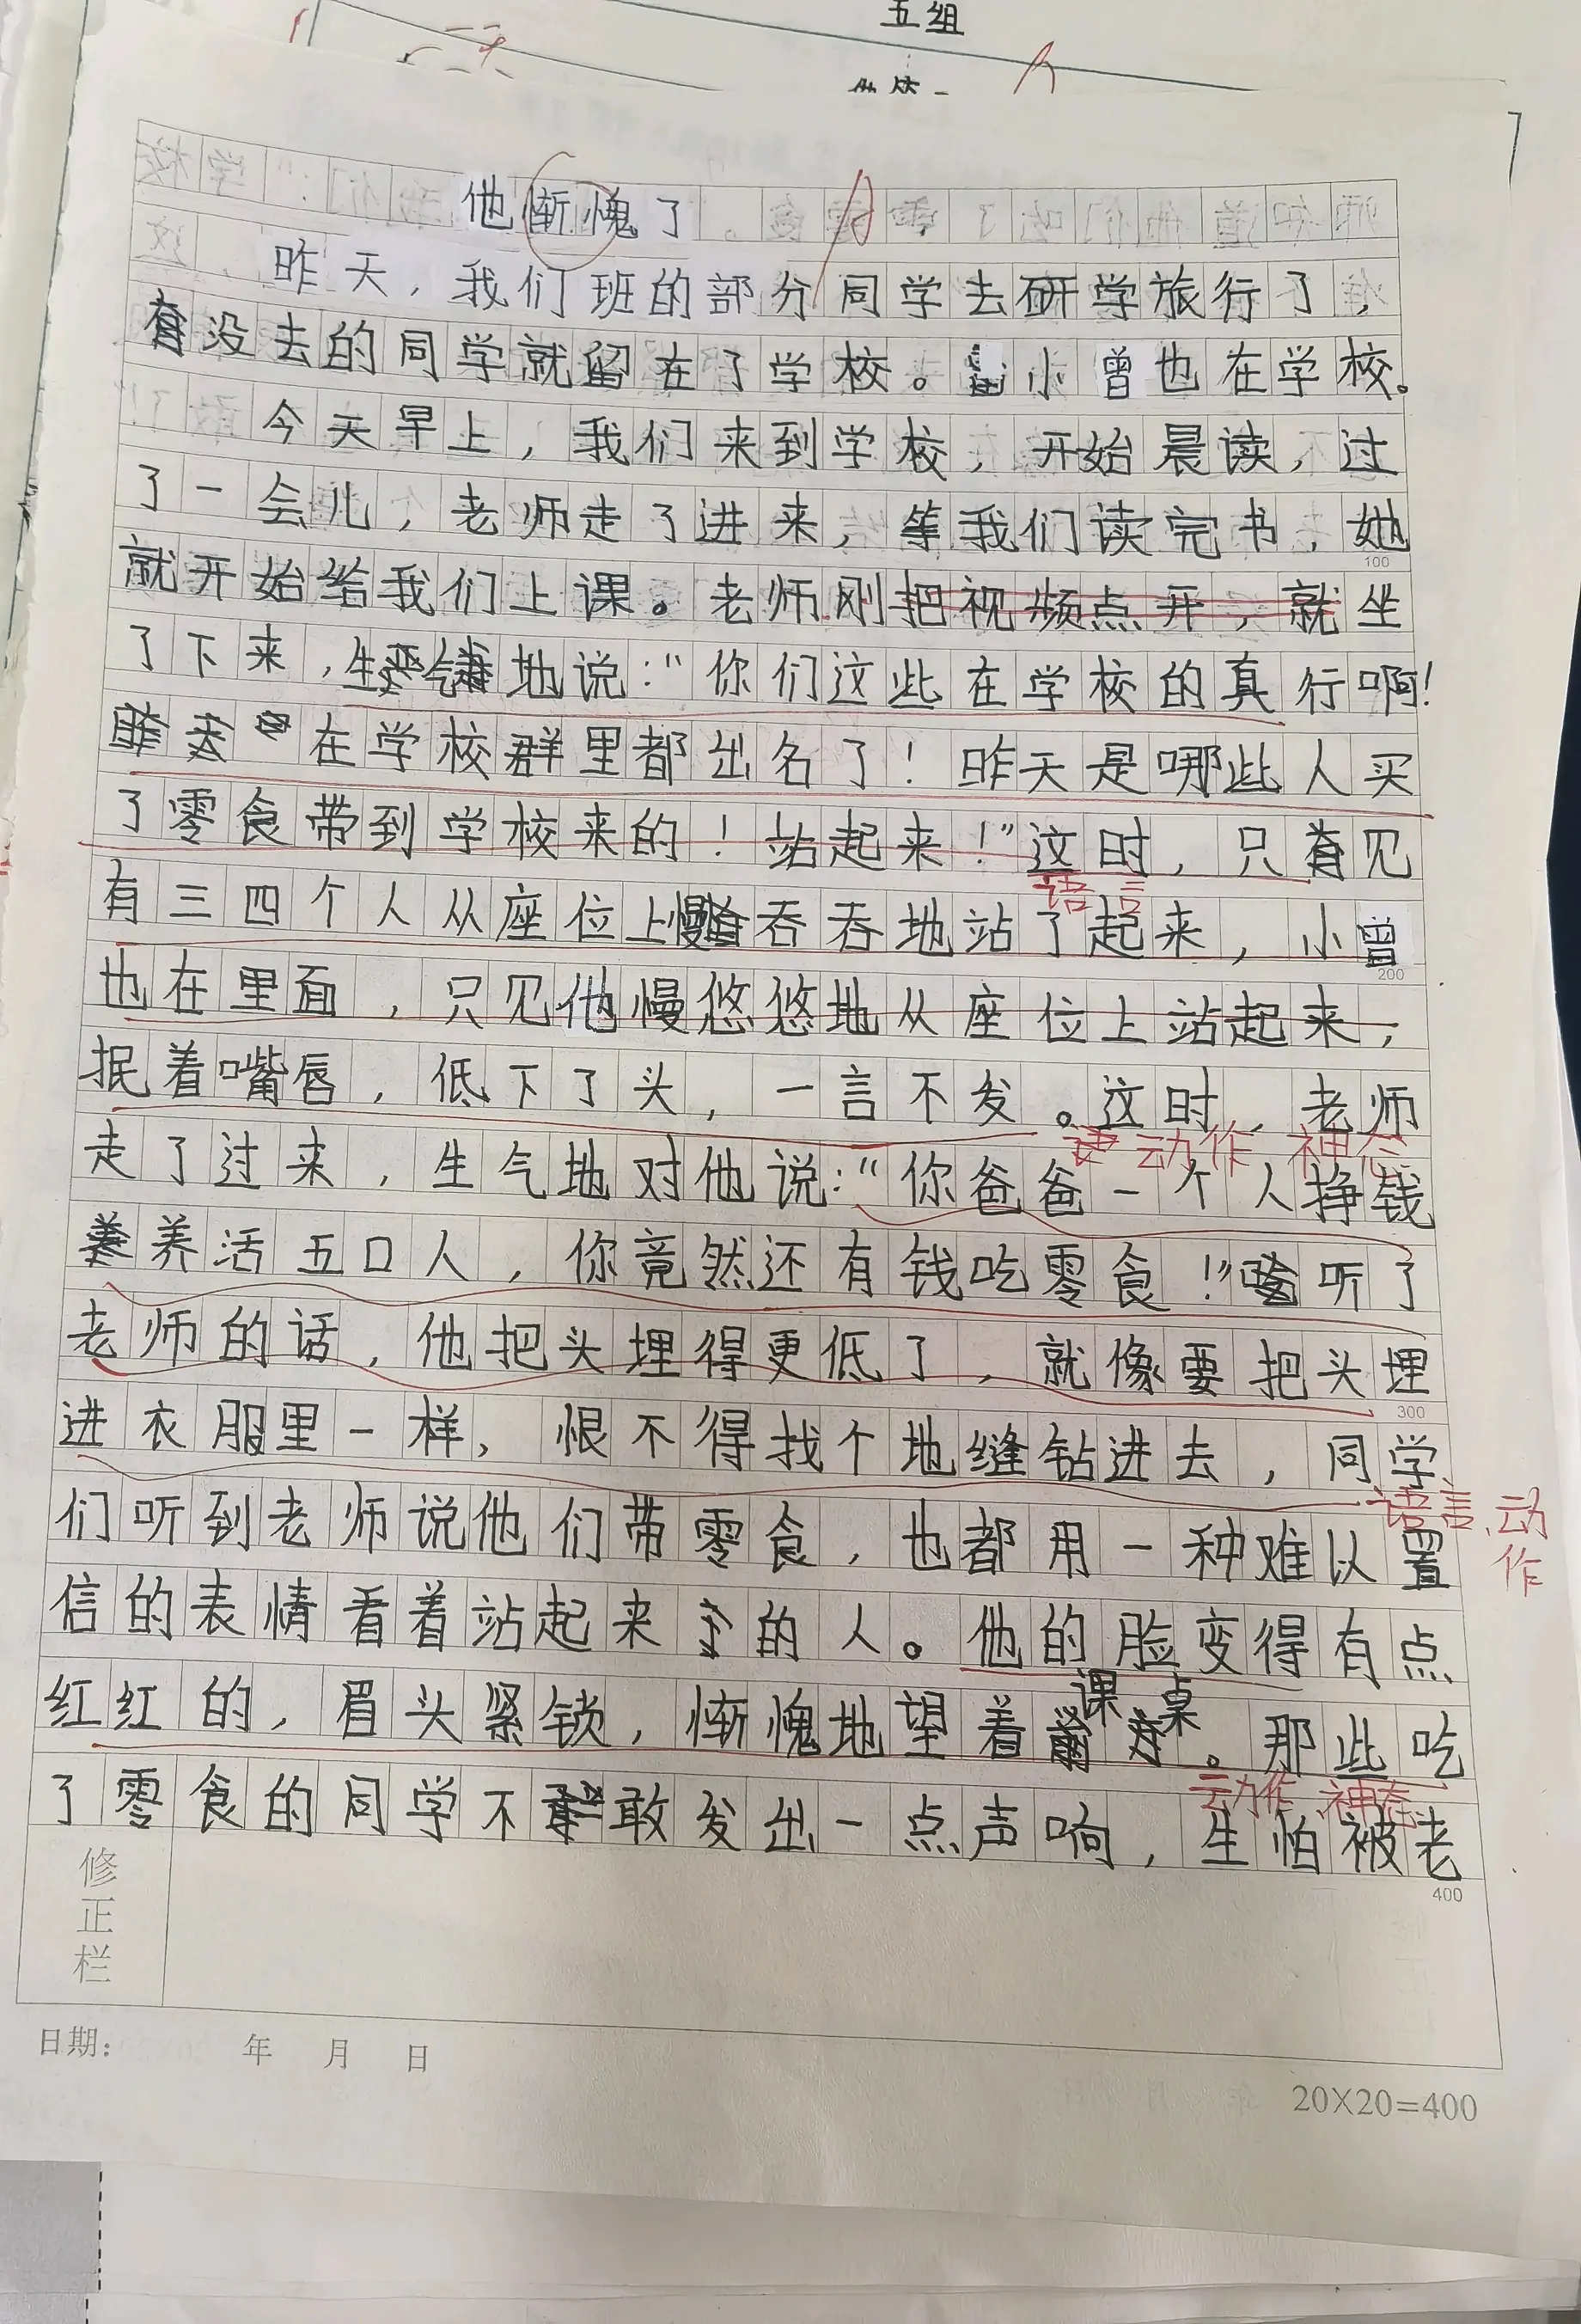 五组
他惭愧了
昨天，我们班的部分同学去研学旅行了，
没去的同学就留在了学校。小曾也在学校。
今天早上，我们来到学校，开始晨读，过
了一会儿，老师走了进来，等我们读完书，她
就开始给我们上课。老师刚把视频点开，就坐
了下来，生气地说：“你们这些在学校的真行啊！
在学校群里都出名了！昨天是哪些人买
了零食带到学校来的！站起来！”这时，只见
语言
有三四个人从座位上慢吞吞地站了起来，小曾
200
也在里面，只见他慢悠悠地从座位上站起来，
抿着嘴唇，低下了头，一言不发。这时，老师
动作 神态
走了过来，生气地对他说：“你爸爸一个人挣钱
养活五口人，你竟然还有钱吃零食！”听了
老师的话，他把头埋得更低了，就像要把头埋
300
进衣服里一样，恨不得找个地缝钻进去，同学
语言、动作
们听到老师说他们带零食，也都用一种难以置
信的表情看着站起来的人。他的脸变得有点
红红的，眉头紧锁，惭愧地望着课桌。那些吃
动作 神态
了零食的同学不敢发出一点声响，生怕被老
400
修正栏
日期： 年 月 日
20X20=400
100